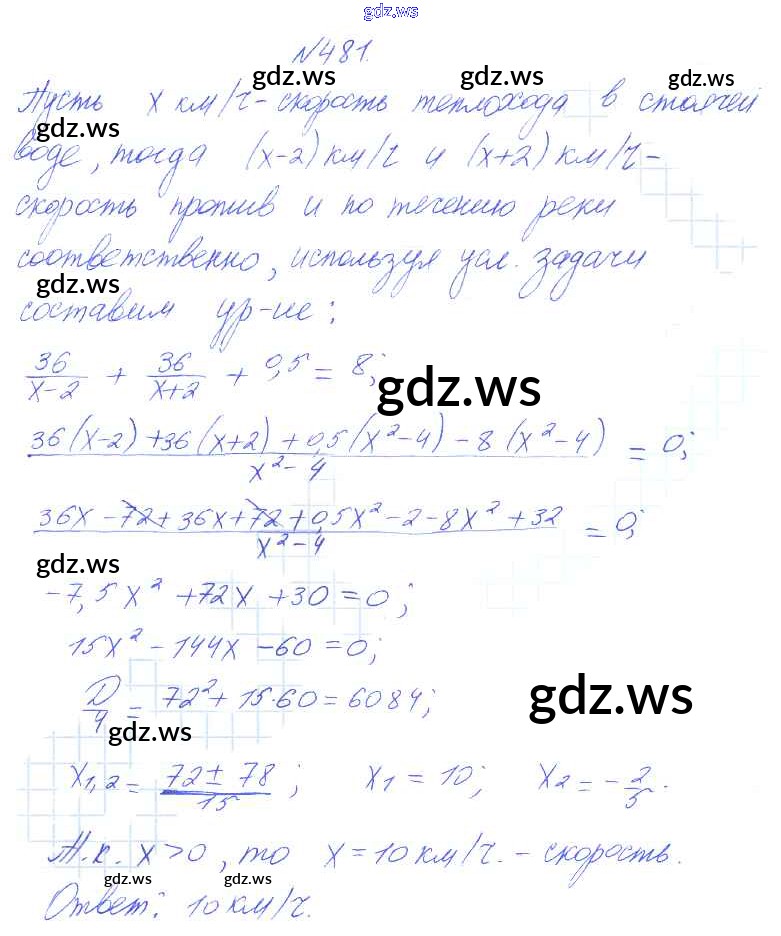 gdz.ws
№481.
gdz.ws gdz.ws gdz.ws
Пусть x км/ч - скорость теплохода в стоячей
gdz.ws
воде, тогда (x-2) км/ч и (x+2) км/ч -
скорость против и по течению реки
соответственно, используя усл. задачи
gdz.ws
составим ур-ие:
36/(x-2) + 36/(x+2) + 0,5 = 8;
gdz.ws
(36(x-2)+36(x+2)+0,5(x²-4)-8(x²-4))/(x²-4) = 0;
(36x-72+36x+72+0,5x²-2-8x²+32)/(x²-4) = 0;
gdz.ws
-7,5x²+72x+30=0;
15x²-144x-60=0;
D/4 = 72²+15·60=6084;
gdz.ws
gdz.ws
x1,2 = (72±78)/15; x1=10; x2=-2/5.
Т.к. x>0, то x=10 км/ч. - скорость.
gdz.ws gdz.ws
Ответ: 10 км/ч.